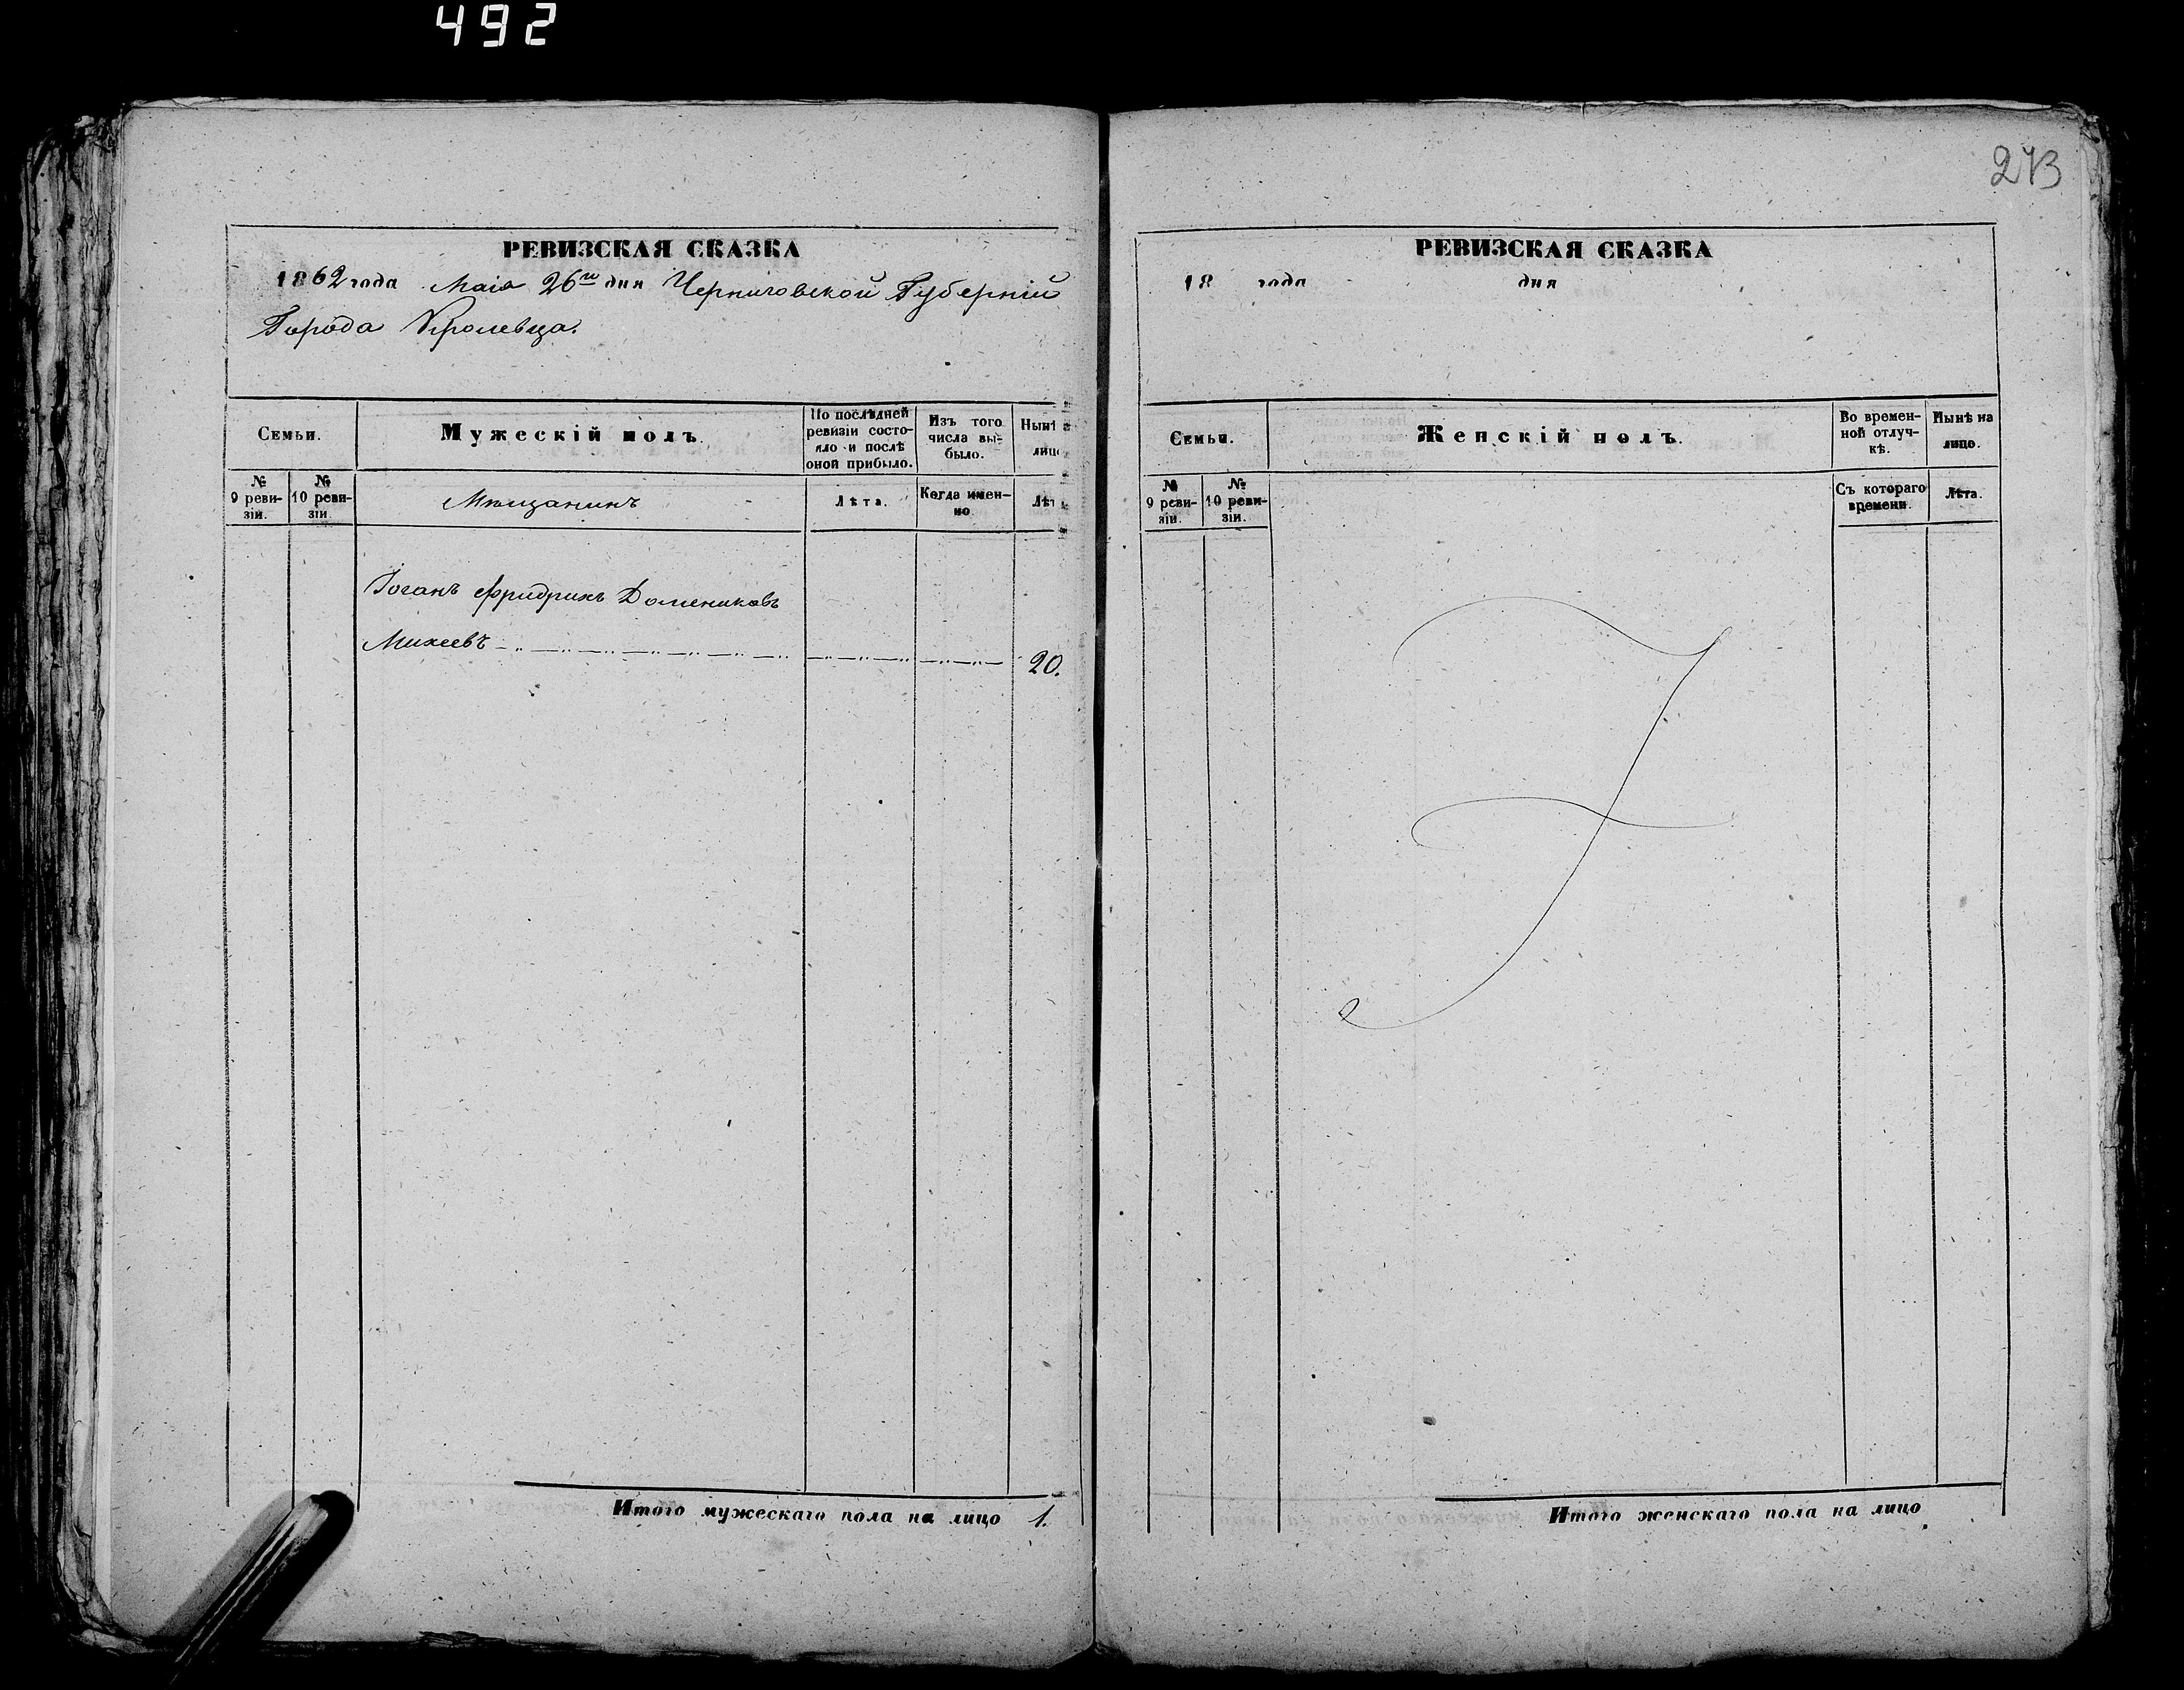 492
273
РЕВИЗСКАЯ СКАЗКА
1862 года Маія 26го дня Черниговской Губерніи
Города Кролевца.
Семьи.
Мужескій полъ.
По послѣдней
ревизіи состо-
яло и послѣ
оной прибыло.
Изъ того
числа вы-
было.
Нынѣ
лицо
№
9 реви-
зіи.
№
10 реви-
зіи.
Мѣщанинъ
Лѣта.
Когда имен-
но
Лѣт
Іоганъ Фридрихъ Домениковъ
Михеевъ
20.
Итого мужескаго пола на лицо 1.
РЕВИЗСКАЯ СКАЗКА
18 года дня
Семьи.
Женскій полъ.
Во времен-
ной отлуч-
кѣ.
Нынѣ на
лицо.
№
9 реви-
зіи.
№
10 реви-
зіи.
Съ котораго
времени.
Лѣта.
Итого женскаго пола на лицо